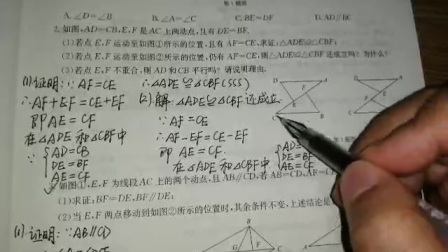 A. ∠D=∠B B. ∠A=∠C C. BE=DF D. AD∥BC
2.如图,AD=CB,E,F是AC上两动点,且有DE=BF.
(1)若点E,F运动至如图①所示的位置,且有AF=CE,求证:△ADE≌△CBF;
(2)若点E,F运动至如图②所示的位置,仍有AF=CE,则△ADE≌△CBF还成立吗?为什么?
(3)若点E,F不重合,则AD和CB平行吗?请说明理由.
(1)证明:∵AF=CE
∴AF+EF=CE+EF
即AE=CF
在△ADE和△CBF中
∵
AD=CB
DE=BF
AE=CF
∴△ADE≌△CBF(SSS)
(2)解:△ADE≌△CBF还成立
∵AF=CE
∴AF-EF=CE-EF
即AE=CF.
在△ADE和△CBF中
AD=CB
DE=BF
AE=CF
如图①,E,F为线段AC上的两个动点,且
(1)求证:BF=DE,
(2)当E,F两点移动到如图②所示的位置时,其余条件不变,上述结论是
(1)证明:∵AB∥CD